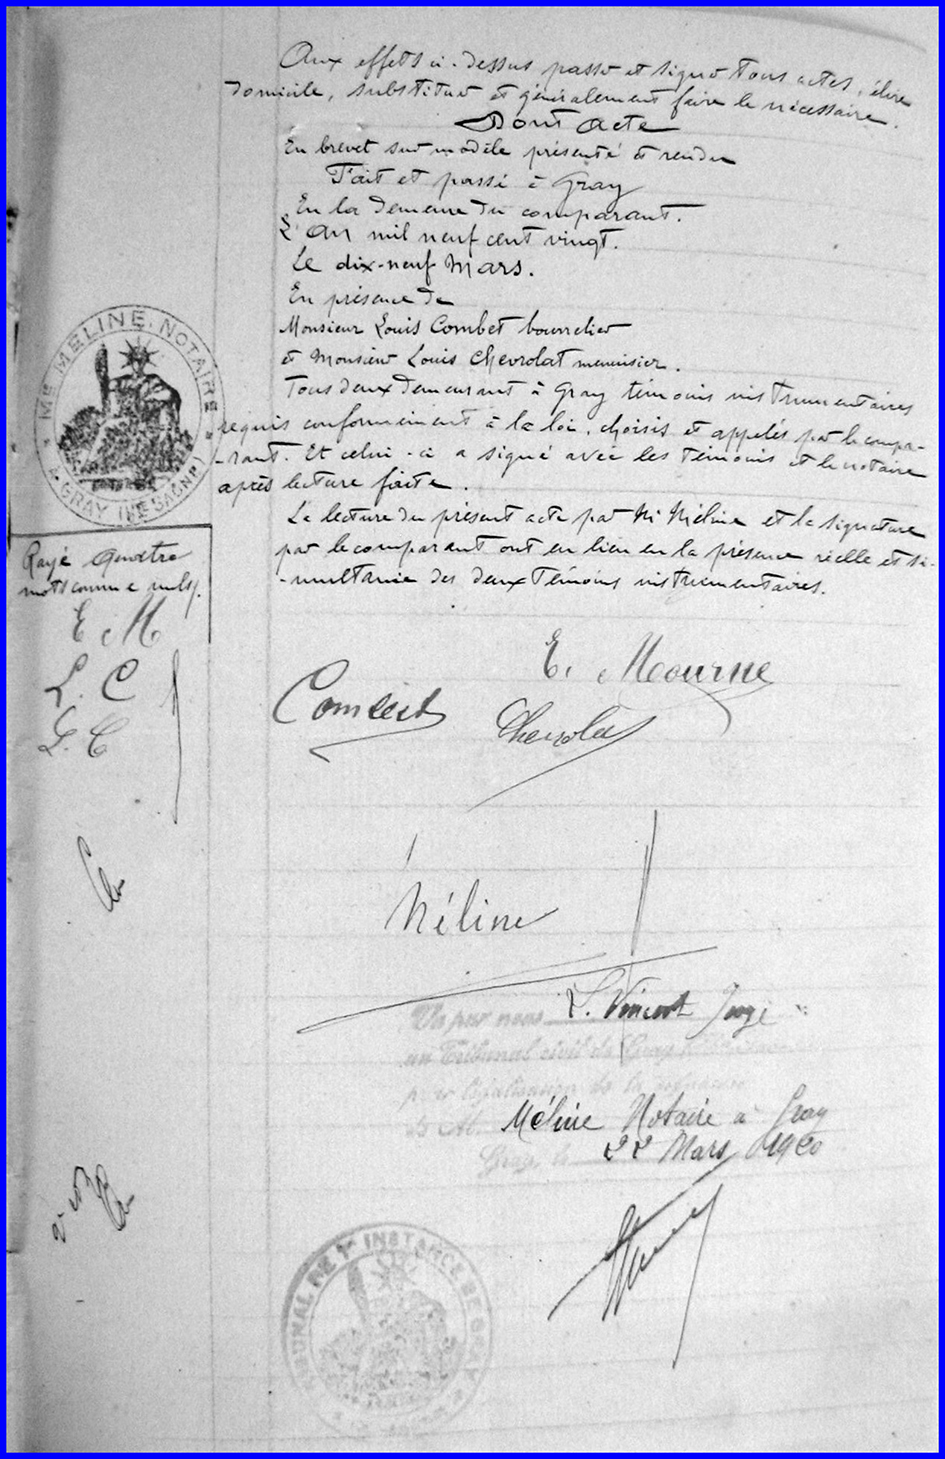 Aux effets ci-dessus passer et signer tous actes, élire
domicile, substituer et généralement faire le nécessaire.
Dont acte
En brevet sur modèle présenté et rendu
Fait et passé à Gray
En la demeure du comparant.
L'An mil neuf cent vingt.
Le dix-neuf Mars.
En présence de
Monsieur Louis Combet bourrelier
et Monsieur Louis Chevrolat menuisier.
Tous deux demeurant à Gray témoins instrumentaires
requis conformément à la loi, choisis et appelés par le compa-
-rant. Et celui-ci a signé avec les témoins et le notaire
après lecture faite.
La lecture du présent acte par Me Méline et la signature
par le comparant ont eu lieu en la présence réelle et si-
-multanée des deux témoins instrumentaires.
Me MELINE, NOTAIRE
A GRAY
Rayé quatre
mots comme nuls.
E M
L. C
L. C
E. Mourne
Combet
Chevrolat
Méline
Vu par nous L. Vincent Juge
au Tribunal civil de Gray
pour légalisation de la signature
de M. Méline Notaire à Gray
Gray, le 22 Mars 1920
TRIBUNAL DE 1re INSTANCE DE GRAY